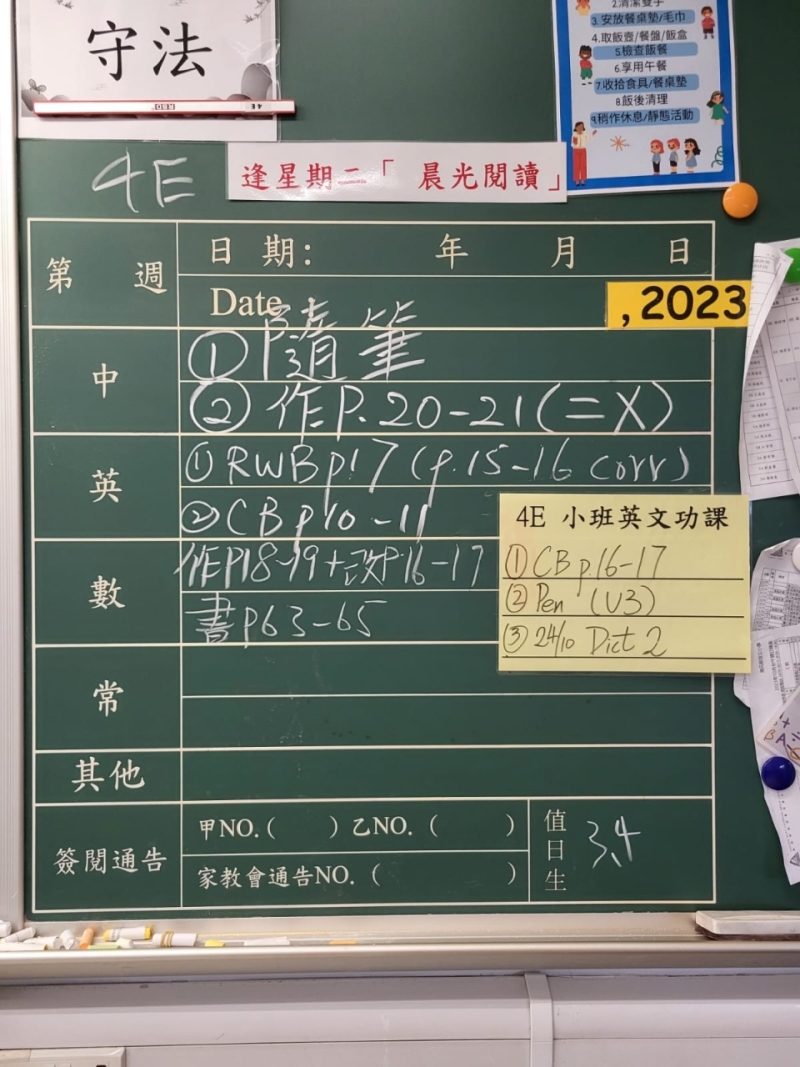 守法
2.清潔雙手
3.安放餐桌墊/毛巾
4.取飯壺/餐盤/飯盒
5.檢查飯餐
6.享用午餐
7.收拾食具/餐桌墊
8.飯後清理
9.稍作休息/靜態活動
4E
逢星期二「 晨光閱讀」
第 週
日 期: 年 月 日
Date
, 2023
中
① 隨筆
② 作P.20-21(=X)
英
① RWB p17 (p.15-16 corr)
② CB p10-11
4E 小班英文功課
① CB p.16-17
② Pen (U3)
③ 24/10 Dict 2
數
作P18-19+改P.16-17
書P63-65
常
其他
簽閱通告
甲NO.( ) 乙NO. ( )
家教會通告NO. ( )
值日生
3,4